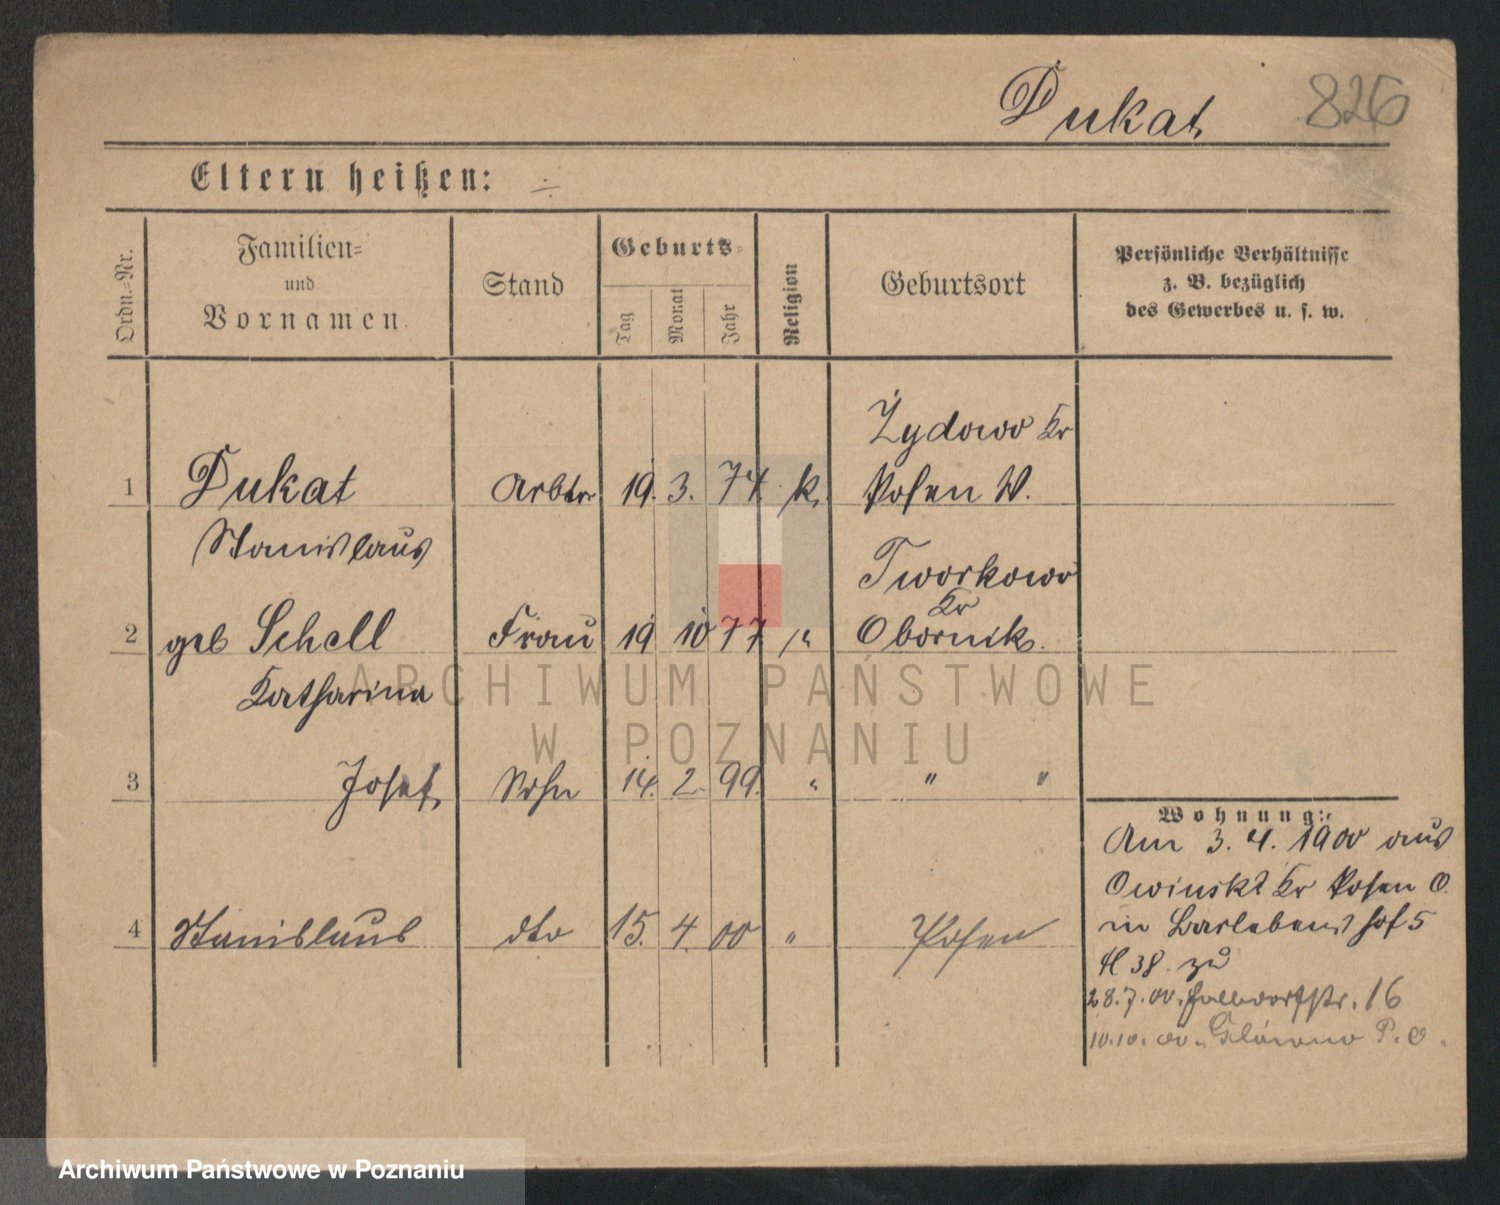 Dukat 826
Eltern heißen: ÷
Ordn.-Nr.
Familien-
und
Vornamen
Stand
Geburts-
Tag
Monat
Jahr
Religion
Geburtsort
Persönliche Verhältnisse
z. B. bezüglich
des Gewerbes u. s. w.
Żydowo Kr
1 Dukat Arbtr 19. 3. 74 k. Posen W.
Stanislaus
Tworkowo
Kr
2 geb Schell Frau 19 10 77 " Obornik.
Katharina
ARCHIWUM PAŃSTWOWE
W POZNANIU
3 Josef Sohn 14. 2. 99. " " "
Wohnung:
Am 3. 4. 1900 aus
Owinsk Kr Posen O.
4 Stanislaus dto 15. 4. 00 " Posen
in Barlebenshof 5
H 38. zu
28.7.00. 16
10.10.00. Główno P. O.
Archiwum Państwowe w Poznaniu